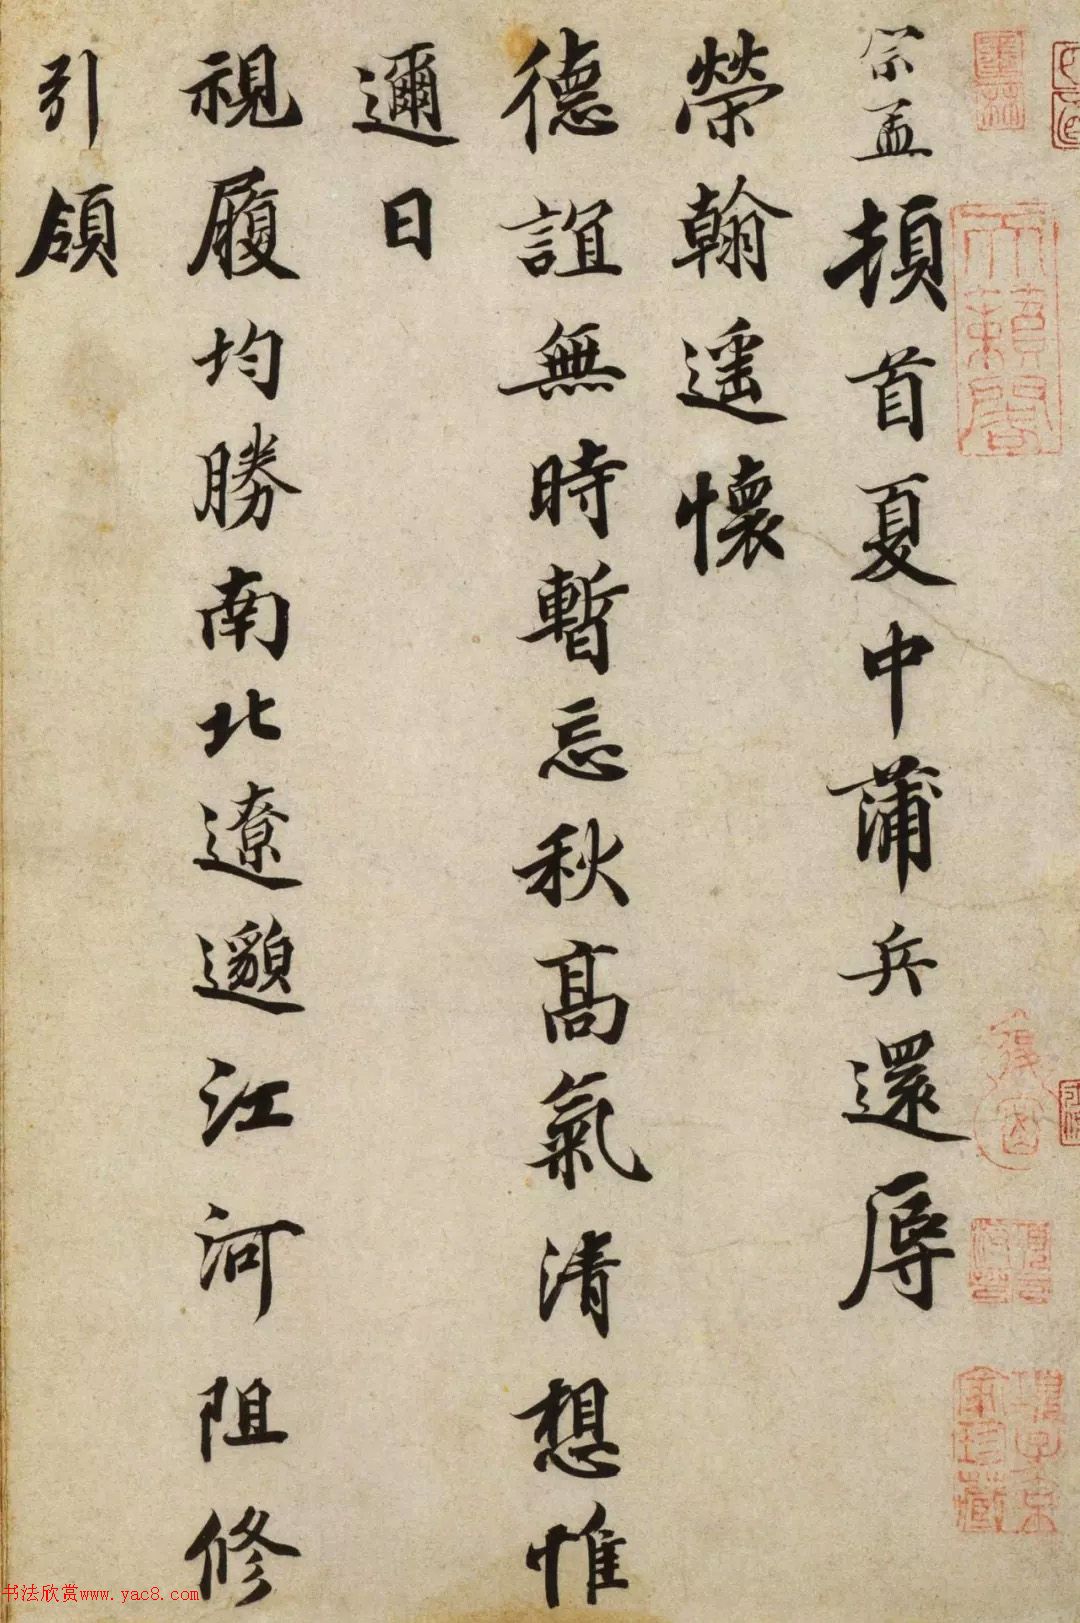 宗孟頓首夏中蒲兵還辱
榮翰遥懷
德誼無時暫忘秋高氣清想惟
邇日
視履均勝南北遼邈江河阻修
引領
天籟閣
項子京家珍藏
书法欣赏www.yac8.com